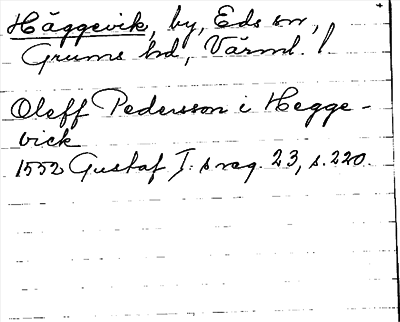 Häggevik, by, Eds sn,
Grums hd, Värml. l.
Oleff Pedersson i Hegge-
vick
1552 Gustaf I:s reg. 23, s. 220.